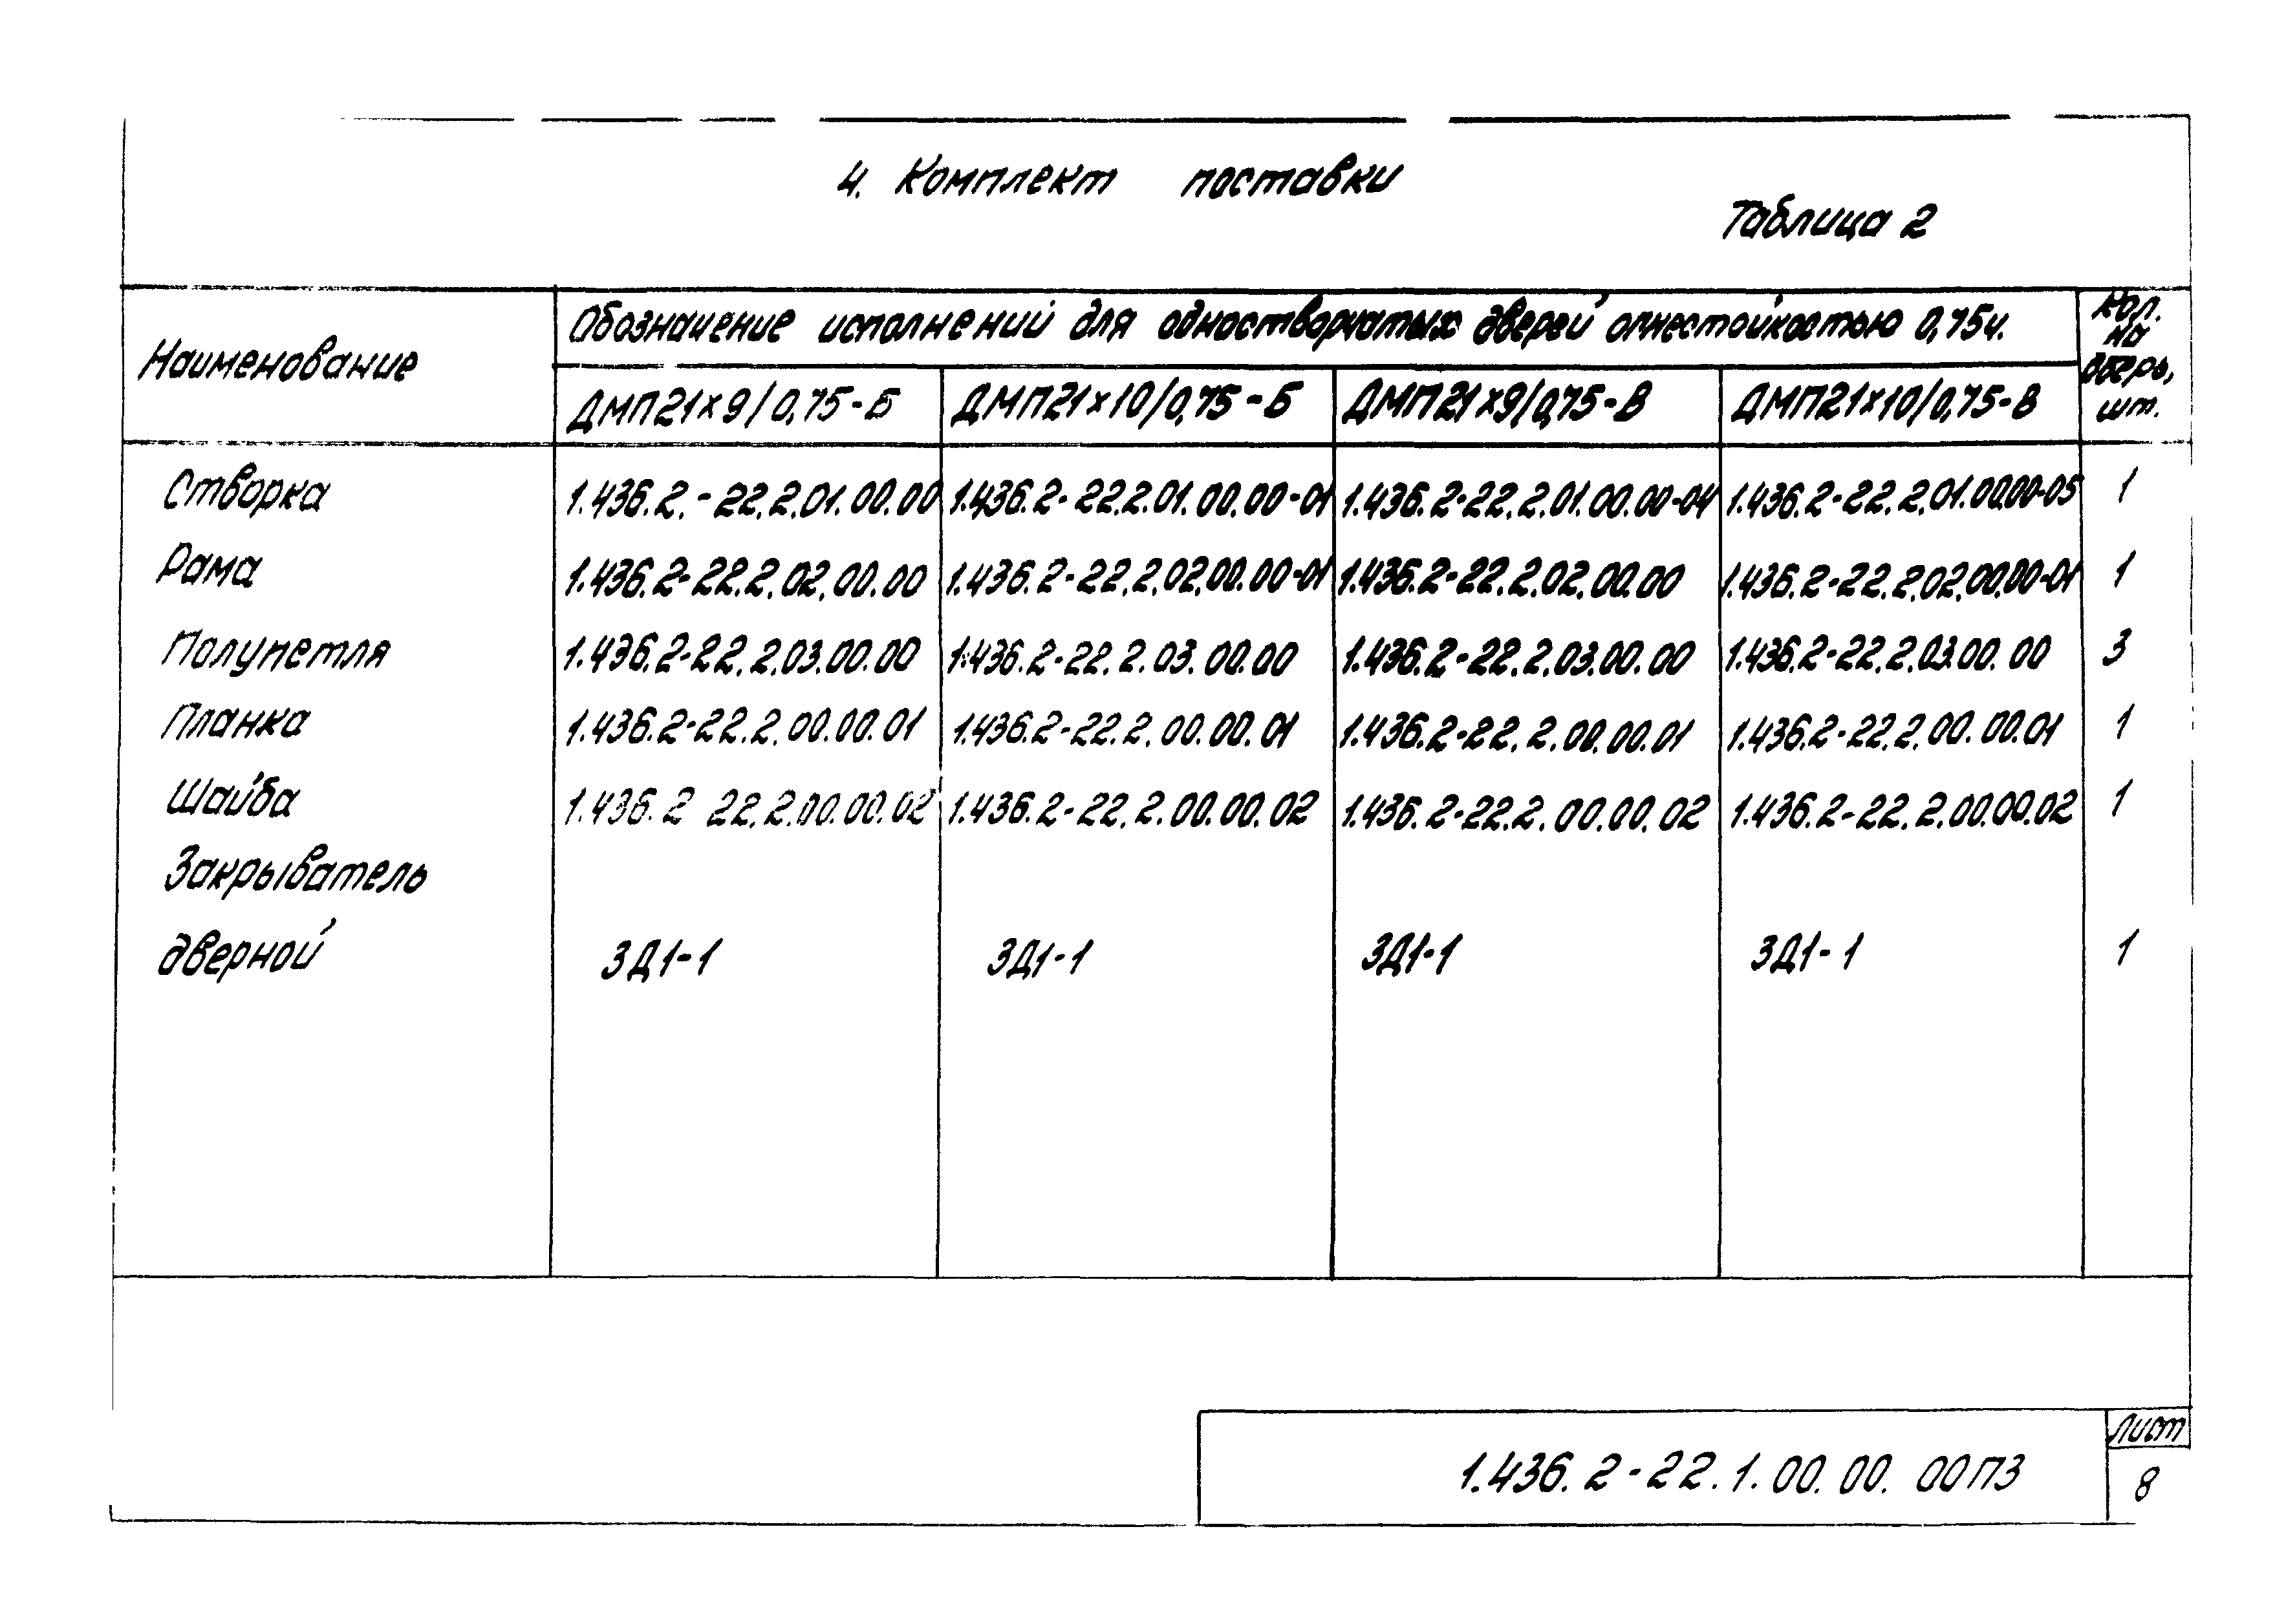 4. Комплект поставки
Таблица 2
Наименование
Обозначение исполнений для одностворчатых дверей огнестойкостью 0,75ч.
Кол.
на
дверь,
шт.
ДМП21×9/0,75-Б ДМП21×10/0,75-Б ДМП21×9/0,75-В ДМП21×10/0,75-В
Створка 1.436.2.-22.2.01.00.00 1.436.2-22.2.01.00.00-01 1.436.2-22.2.01.00.00-04 1.436.2-22.2.01.00.00-05 1
Рама 1.436.2-22.2.02.00.00 1.436.2-22.2.02.00.00-01 1.436.2-22.2.02.00.00 1.436.2-22.2.02.00.00-01 1
Полупетля 1.436.2-22.2.03.00.00 1.436.2-22.2.03.00.00 1.436.2-22.2.03.00.00 1.436.2-22.2.03.00.00 3
Планка 1.436.2-22.2.00.00.01 1.436.2-22.2.00.00.01 1.436.2-22.2.00.00.01 1.436.2-22.2.00.00.01 1
Шайба 1.436.2 22.2.00.00.02 1.436.2-22.2.00.00.02 1.436.2-22.2.00.00.02 1.436.2-22.2.00.00.02 1
Закрыватель
дверной ЗД1-1 ЗД1-1 ЗД1-1 ЗД1-1 1
1.436.2-22.1.00.00.00ПЗ
Лист
8